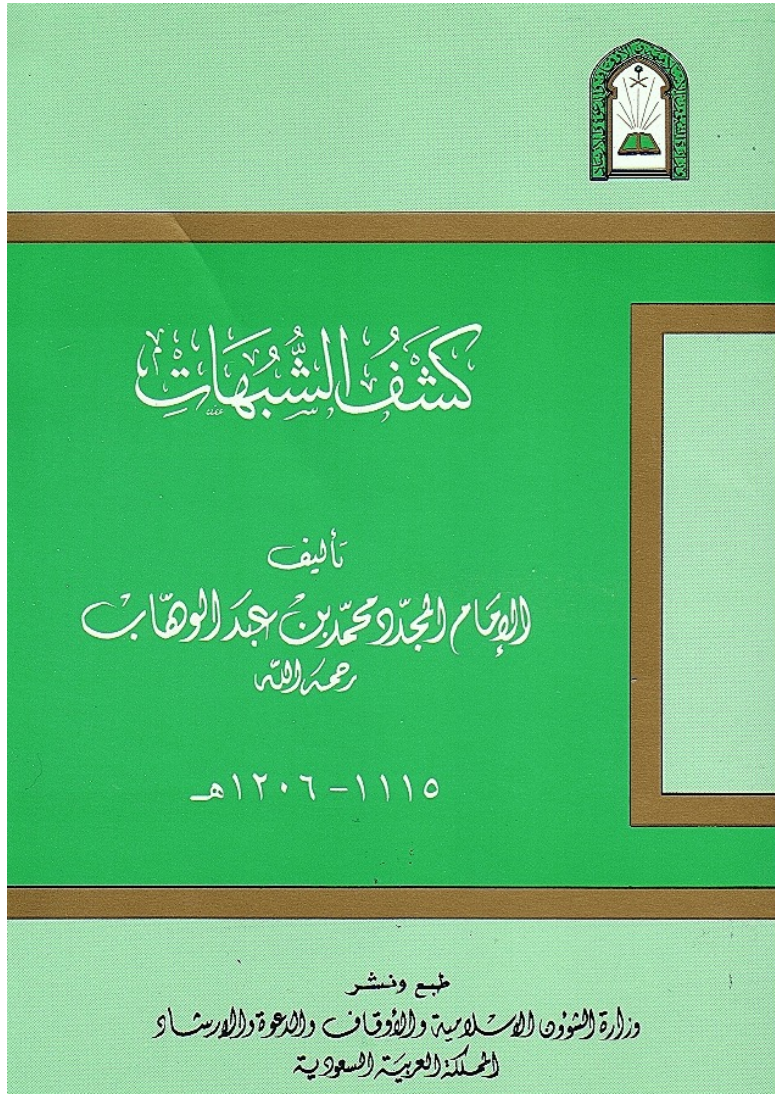 كَشْفُ الشُّبُهَاتِ
تأليف
الإمَام المجدّد محمّد بن عَبد الوهّاب
رحمه الله
١١١٥ - ١٢٠٦هـ
طبع ونشر
وزارة الشؤون الاسلامية والأوقاف والدعوة والارشاد
المملكة العربية السعودية